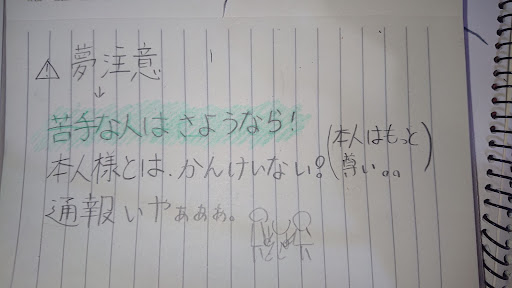 ⚠夢注意
↓
苦手な人はさようなら!
本人様とは、かんけいない?(本人はもっと尊い。。)
通報いやぁぁぁ。